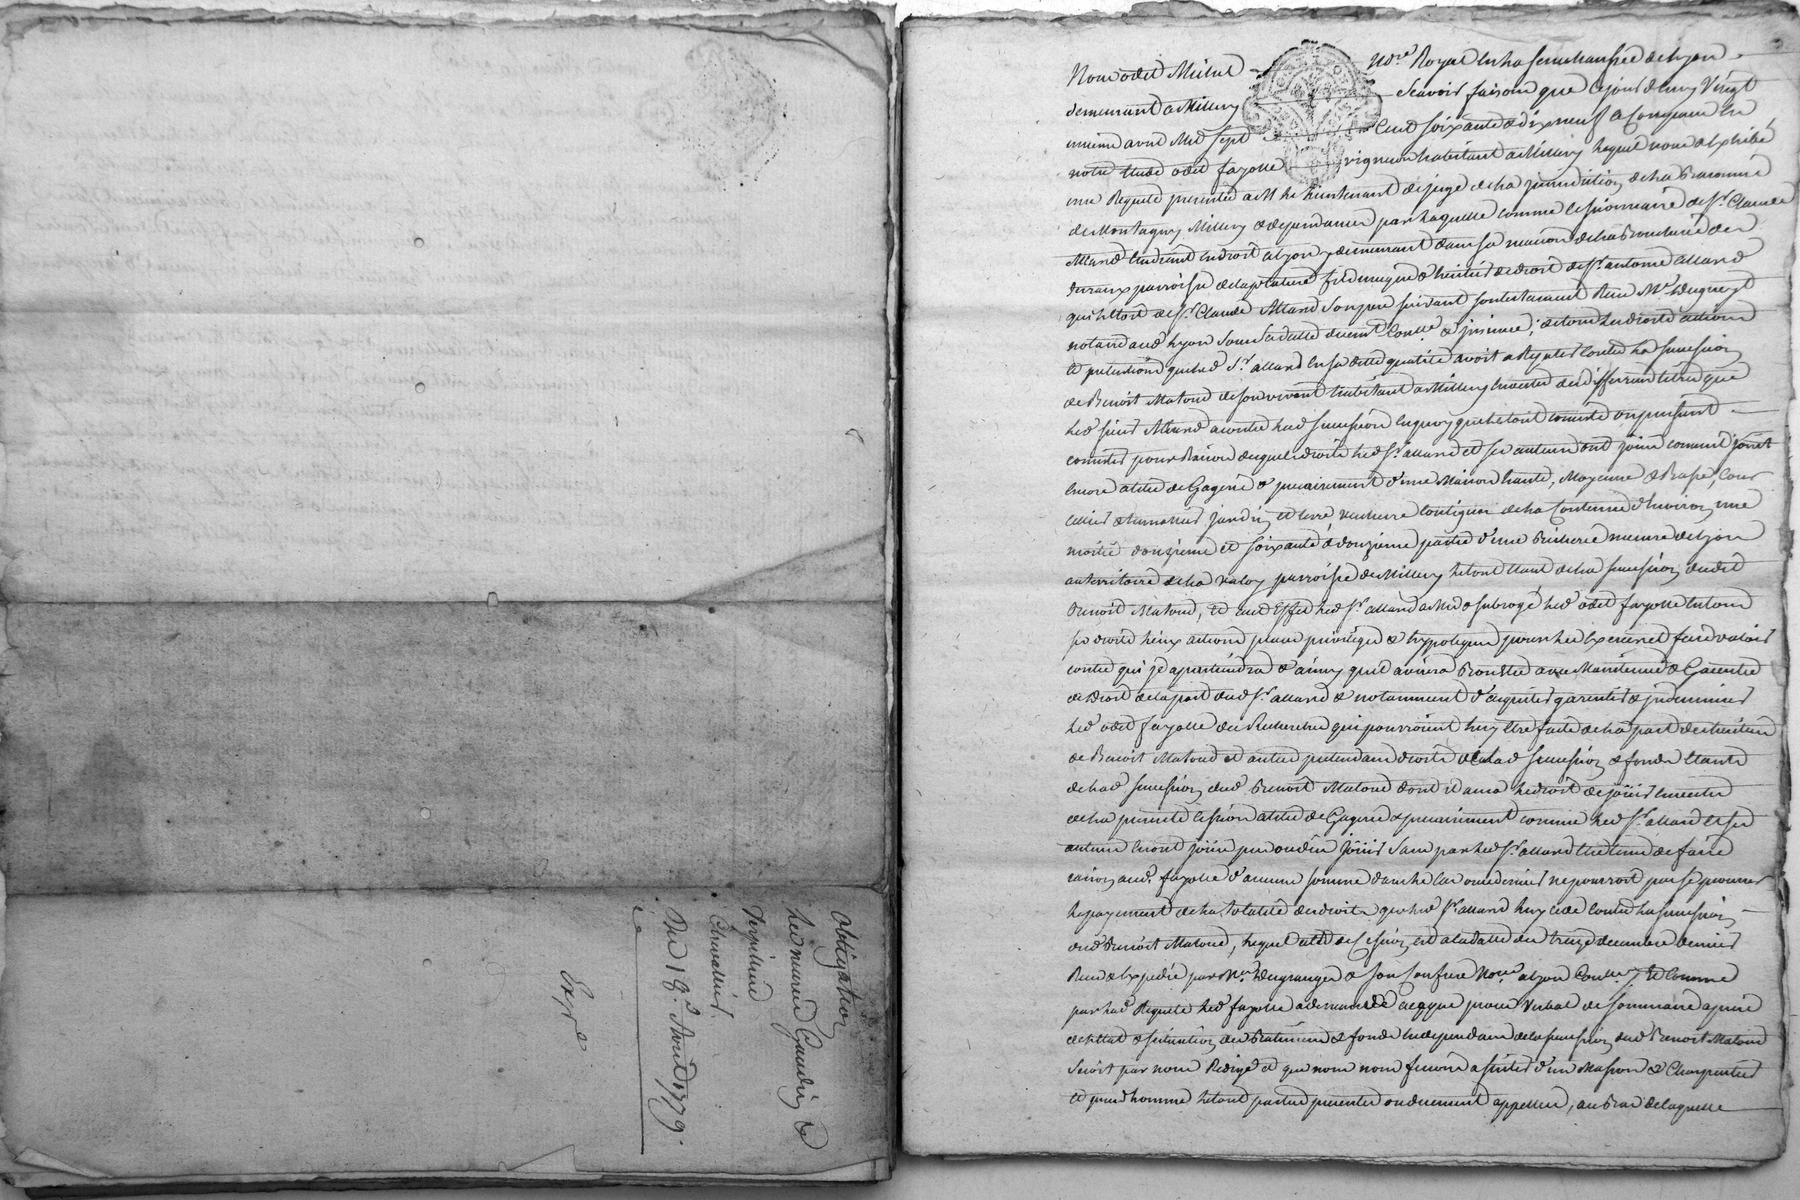 obligation
Les mariés Gaudin &
Chevallier
Du 18e Aout 1779.
Expe
Nous odet Michel Nore Royal en la senechaussée de Lyon
demeurant a Millery scavoir faisons que ce jourd'huy vingt
unieme avril Mil sept Cent soixante & dix neuf a Comparu en
notre Etude odet fayolle vigneron habitant a Millery lequel nous a Exhibé
une Requete presentée a M. le Lieutenant de juge de la jurisdiction de la Baronnie
de Montagny Millery & dependances par laquelle comme cessionnaire de Sr. Claude
Alland Etudiant en droit a Lyon y demeurant dans sa maison
paroisse de la platiere fils unique & heritier de droit de Sr. antoine alland
qui l'etoit de Sr. Claude Alland son pere suivant son testament Recu Me
notaire aud Lyon sous sa datte duement Conllé & insinué; de tous les droits actions
et pretentions que led Sr. alland en sa ditte qualité avoit a Repeter Contre la succession
de Benoit Matoud de son vivant habitant a Millery en vertu des differents titres que
led sieur Alland a contre lad succession en quoy qu'ils soient consisté ou puissent
consister pour Raison desquels droits led Sr. alland et ses auteurs ont joui comme jouit
Encore a titre de Gagerie & precairement d'une Maison haute, Moyenne & Basse, Cour
jardin et terre verchere Contigus de la Contenue d'Environ une
moitié douzieme et soixante & douzieme partie d'une Bicherée mesure de Lyon
au territoire de la paroisse de Millery le tout Etant de la succession dudit
Benoit Matoud, Et aud Effet led Sr. alland a Mis & subrogé led odet fayolle en tous
ses droits lieux actions place privileges & hypoteques pour les Exercer et faire valoir
contre qui il apartiendra & ainsy qu'il avisera Bon Etre avec Maintenue & Garentie
de Droit de la part dud Sr. alland & notamment d'acquitter garentir & indemniser
led odet fayolle des Recherches qui pourroient luy Etre faites de la part des heritiers
de Benoit Matoud et autres pretendans droits de lad succession & fonds Etants
de lad succession dud Benoit Matoud dont il aura le droit de jouir en vertu
de la presente Cession a titre de Gagerie & precairement comme led Sr. alland et ses
auteurs en ont joui pu ou du jouir sans par led Sr. alland Etre tenu de faire
raison aud. fayolle d'aucune somme dans le cas ou ce dernier ne pourroit pas se procurer
le payement de la totalité des droits que led Sr. alland luy cede Contre la succession
dud Benoit Matoud, lequel acte de Cession est a la datte du treize decembre dernier
Recu & Expedié par Me Desgranges & son Confrere Nores a Lyon Conllé, Et Comme
par lad Requete led fayolle a demandé acte que procés Verbal de sommaire aprise
de l'Etat & situation des Batiments & fonds dependans de la succession dud Benoit Matoud
seroit par nous Redigé et que nous nous ferions assister d'un Masson & Charpentier
et prud'homme le tout parties presentes ou duement appellées, au Bas de laquelle